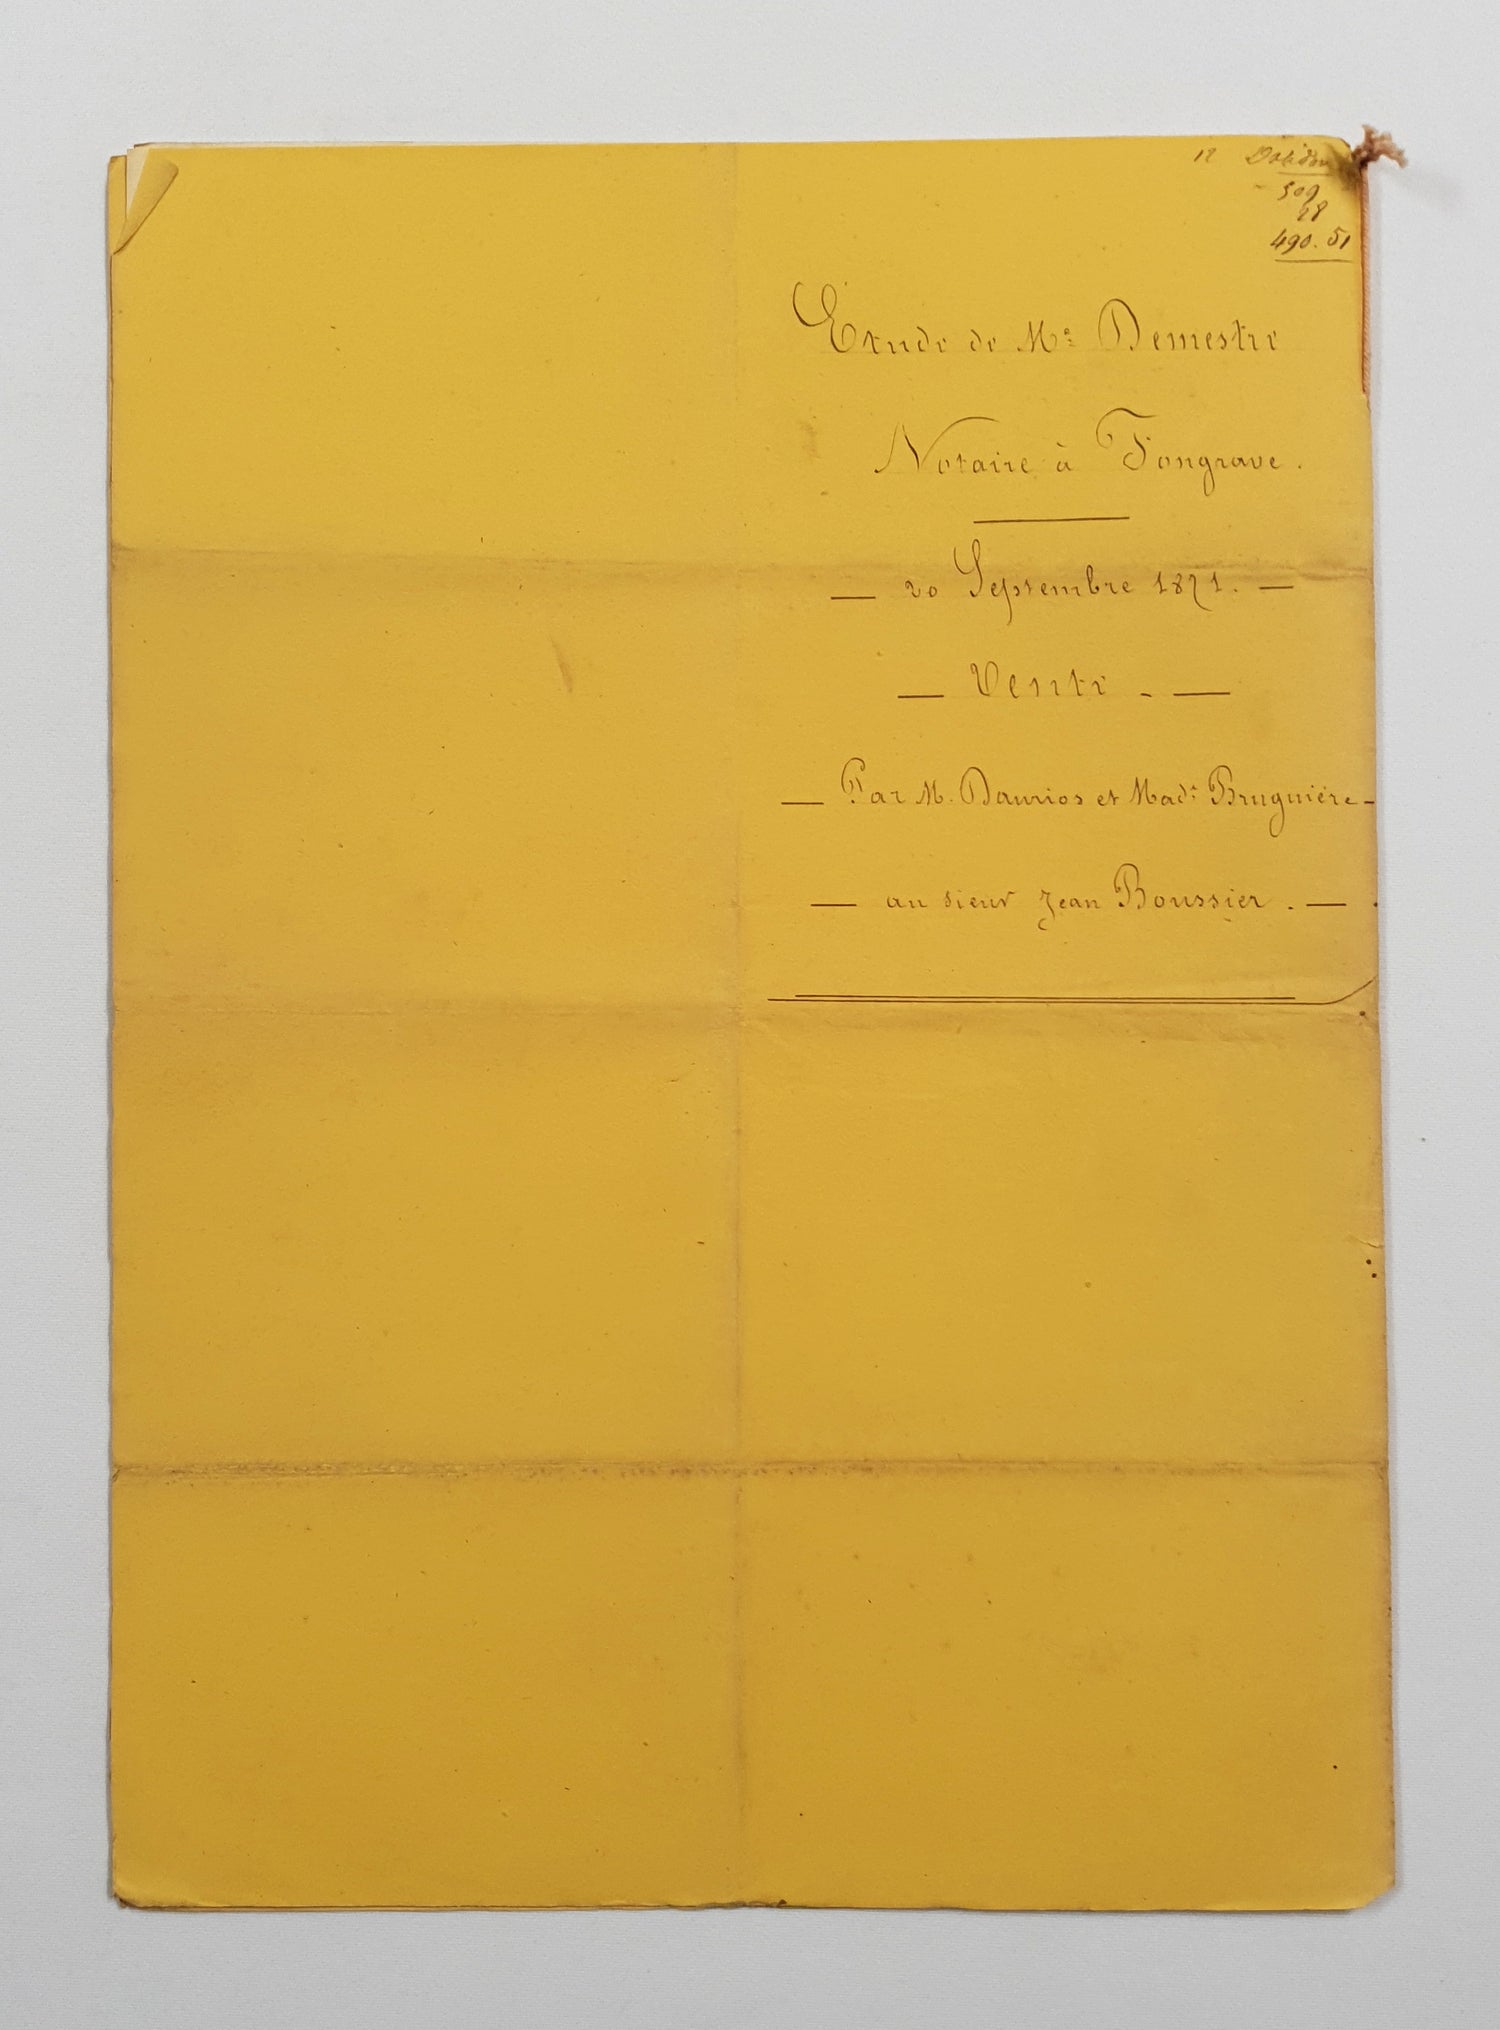 12
509
28
490. 51
Etude de Me Demestre
Notaire à Fongrave.
— 20 Septembre 1871. —
— Vente - —
— Par M. Daurios et Made Bruguière —
— au sieur Jean Boussier. —